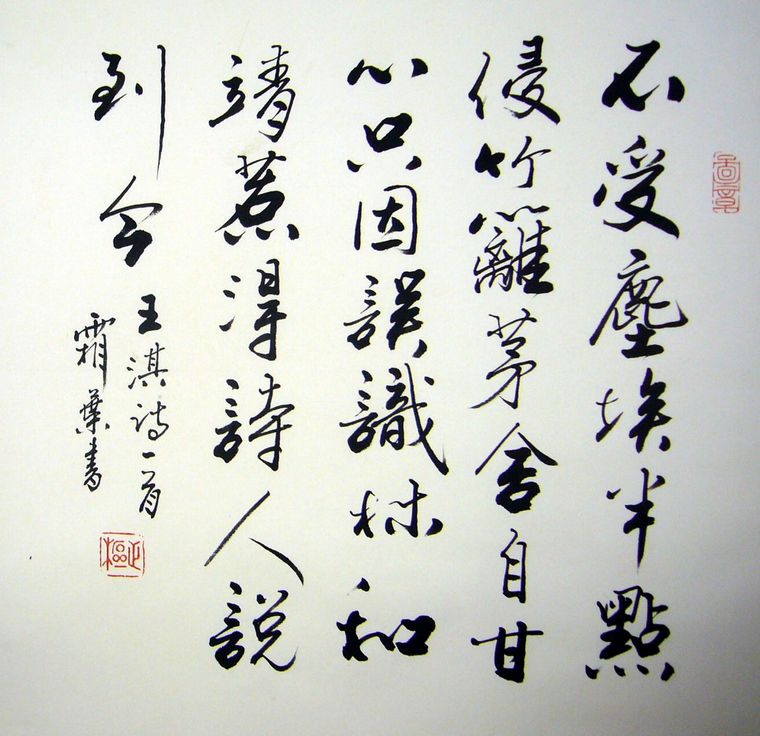 不受塵埃半點
侵竹籬茅舍自甘
心只因誤識林和
靖惹得詩人說
到今
王淇詩一首
霜葉書